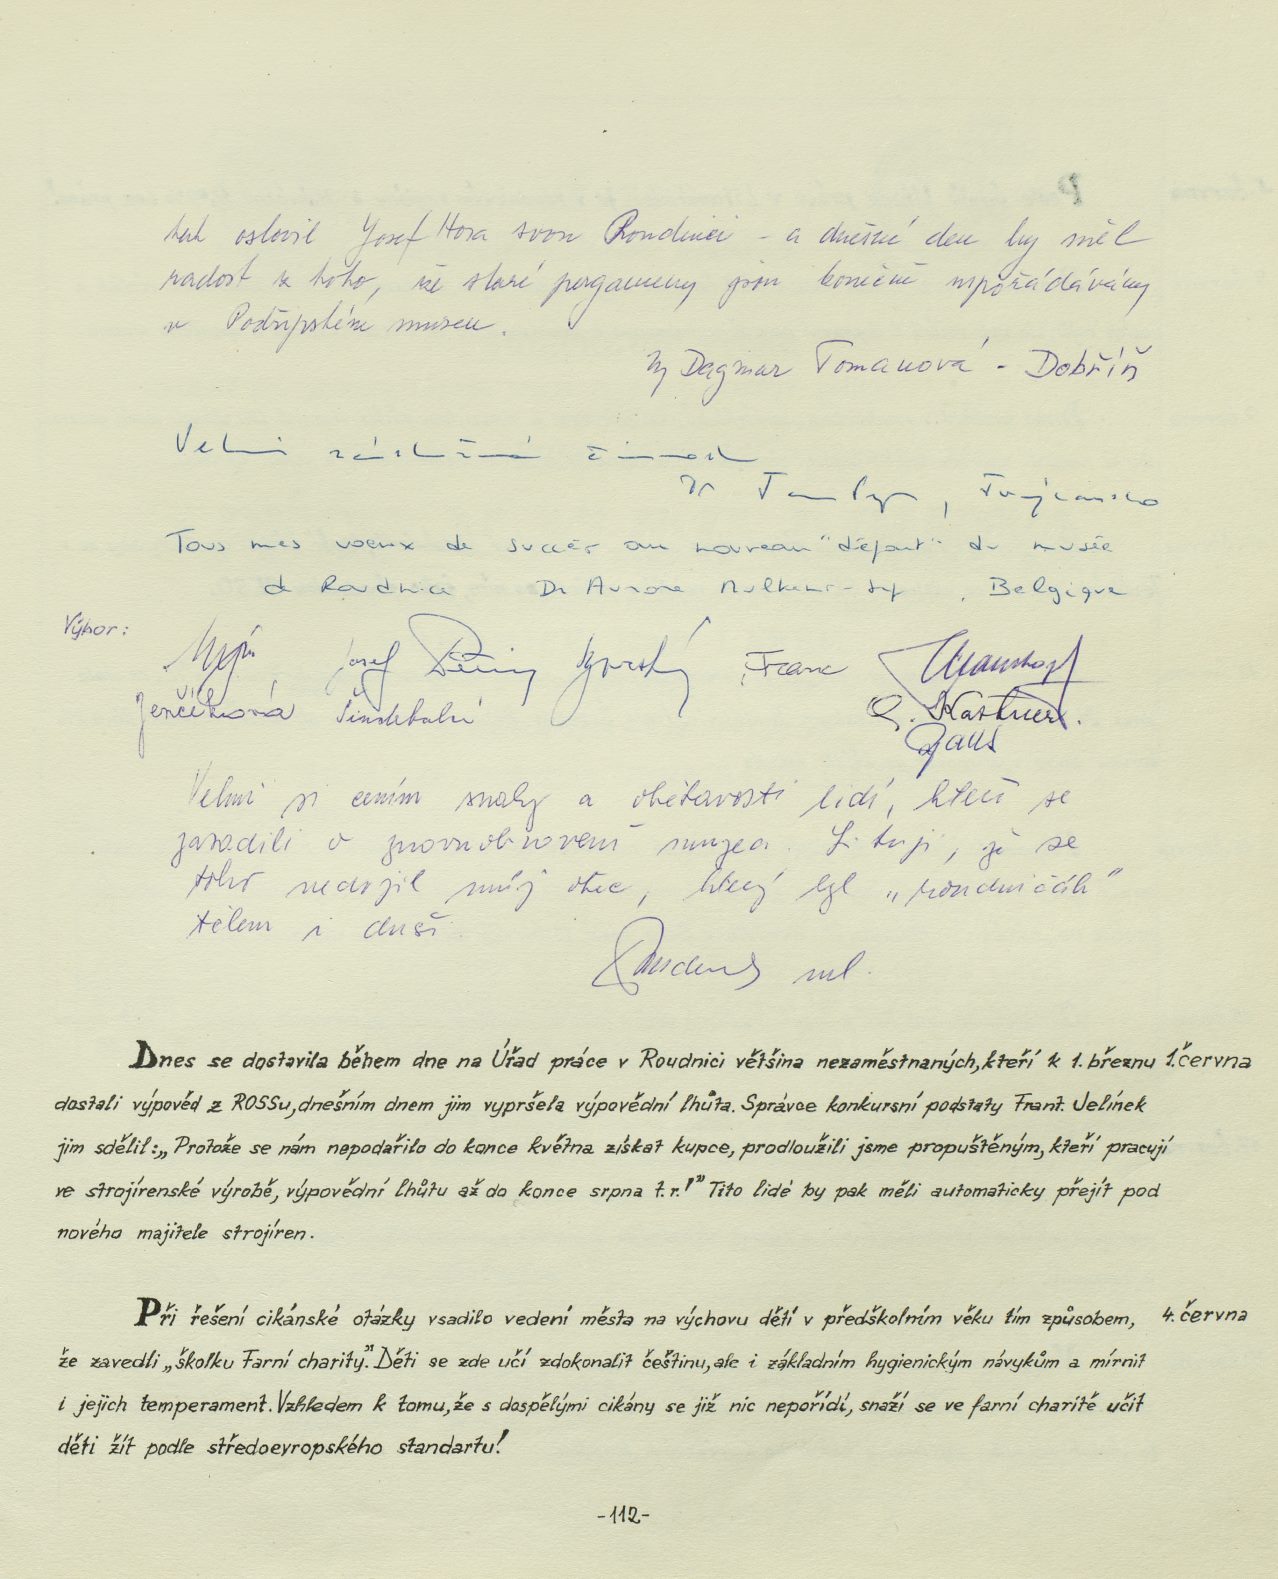 tak oslovil Josef Hora svou Roudnici - a dnešní den by měl
radost z toho, že staré pergameny jsou konečně uspořádávány
v Podřipském museu.
Dagmar Tomanová - Dobříň
Velmi záslužná činnost
Dr , Švýcarsko
Tous mes voeux de succès au nouveau "départ" du musée
de Roudnice Dr Aurore , Belgique
Výbor:
Josef Franc
Jenčíková Šindelář
Kastner.
Velmi si cením snahy a obětavosti lidí, kteří se
zasadili o znovuobnovení muzea. Lituji, že se
toho nedožil můj otec, který byl „roudničák"
tělem i duší.
ml.
Dnes se dostavila během dne na Úřad práce v Roudnici většina nezaměstnaných, kteří k 1. březnu 1. června
dostali výpověd z ROSSu, dnešním dnem jim vypršela výpovědní lhůta. Správce konkursní podstaty Frant. Jelínek
jim sdělil: „Protože se nám nepodařilo do konce května získat kupce, prodloužili jsme propuštěným, kteří pracují
ve strojírenské výrobě, výpovědní lhůtu až do konce srpna t.r.!" Tito lidé by pak měli automaticky přejít pod
nového majitele strojíren.
Při řešení cikánské otázky vsadilo vedení města na výchovu dětí v předškolním věku tím způsobem, 4. června
že zavedli „školku Farní charity". Děti se zde učí zdokonalit češtinu, ale i základním hygienickým návykům a mírnit
i jejich temperament. Vzhledem k tomu, že s dospělými cikány se již nic nepořídí, snaží se ve farní charitě učit
děti žít podle středoevropského standartu!
-112-